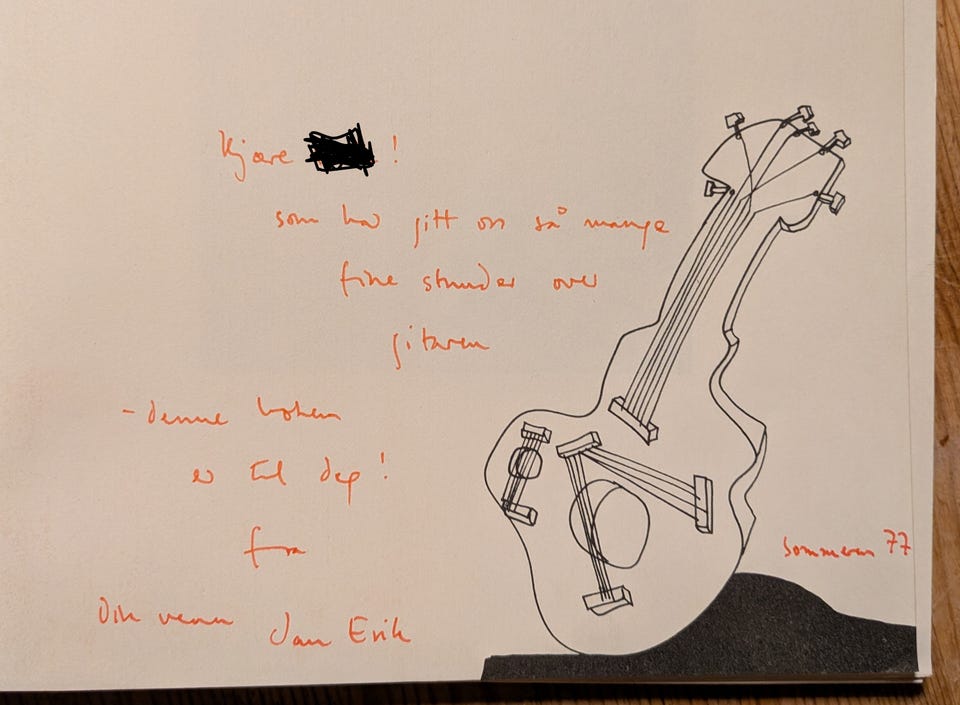 Kjære !
som har gitt oss så mange
fine stunder over
gitaren
- denne boken
er til deg!
fra
Din venn Jan Erik
Sommeren 77